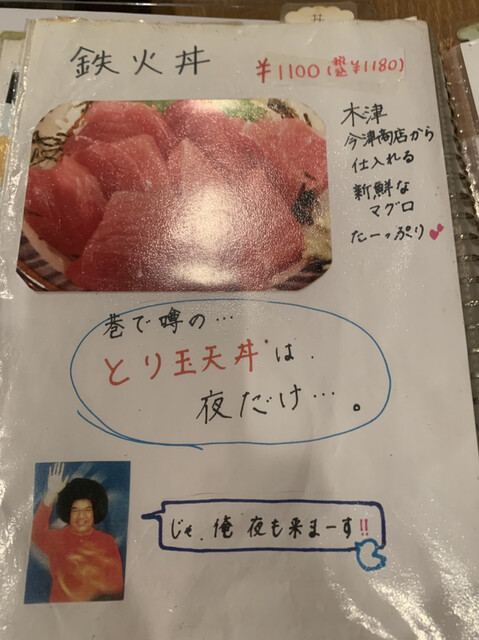 鉄火丼
¥1100(税込¥1180)
木津
今津商店から
仕入れる
新鮮な
マグロ
たーっぷり
巷で噂の…
とり玉天丼は、
夜だけ…。
じゃ、俺 夜も来まーす!!